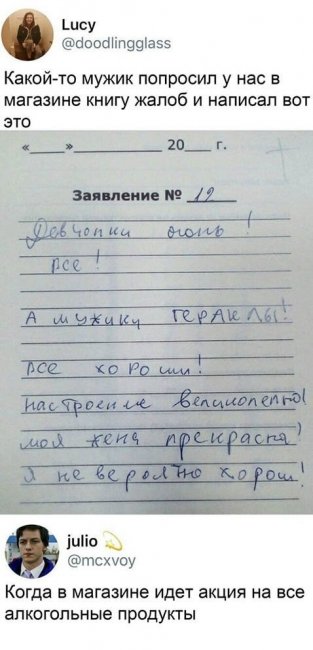 Lucy
@doodlingglass
Какой-то мужик попросил у нас в
магазине книгу жалоб и написал вот
это
«___»____________ 20___ г.
Заявление № 19
Девчонки огонь !
все !
А мужики ГЕРАКЛЫ!
все хороши!
Настроение великолепно!
моя жена прекрасна!
Я не вероятно хорош!
julio 💫
@mcxvoy
Когда в магазине идет акция на все
алкогольные продукты